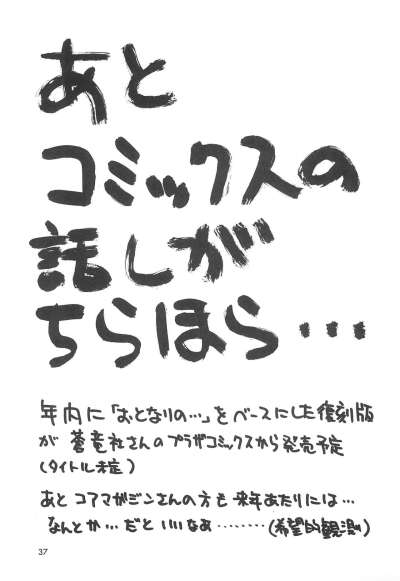 あと
コミックスの
話しが
ちらほら…
年内に「おとなりの…」をベースにした復刻版
が 蒼竜社さんのプラザコミックスから発売予定
(タイトル未定)
あと コアマガジンさんの方も 来年あたりには…
なんとか…だと いいなあ………(希望的観測)
37